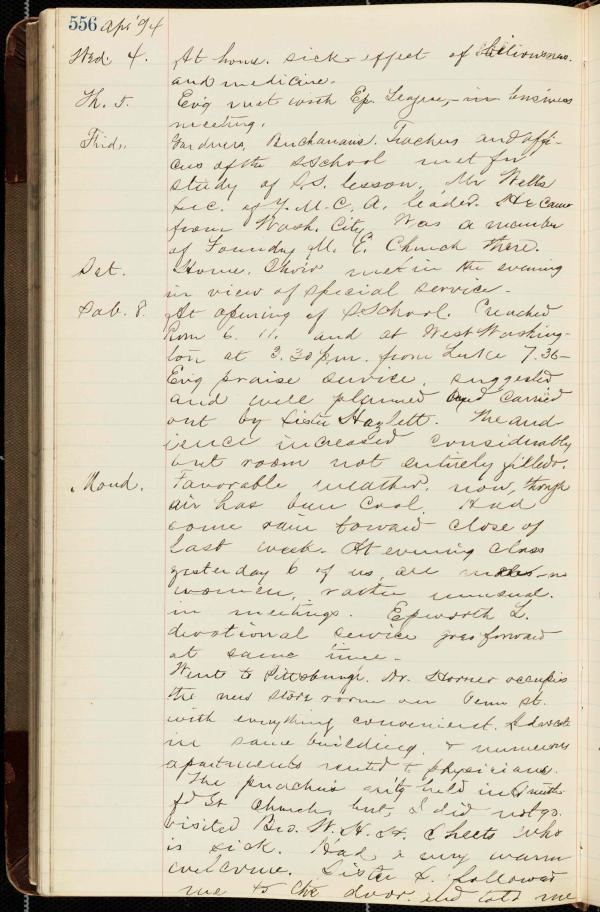 556 Apr '94
Wed. 4. At home. sick - effect of biliousness
and medicine.
Th. 5. Ev'g met with Ep. League, - in business
meeting.
Frid. Gardners, Buchanans. Teachers and offi-
cers of the SSchool met for
study of S.S. lesson. Mr Wells
Sec. of Y.M.C.A. leader. He came
from Wash. City. Was a member
of Foundry M. E. Church there.
Sat. Home. Choir met in the evening
in view of special service.
Sab. 8. At opening of SSchool. Preached
Rom 6. 11. and at West Washing-
ton at 3.30 p.m. from Luke 7.36-
Ev'g praise service, suggested
and well planned and carried
out by Sister Hazlett. The aud-
ience increased considerably
but room not entirely filled.
Mond. Favorable weather now, though
air has been cool. Had
some rain toward close of
last week. At evening class
yesterday 6 of us, all males - no
women, rather unusual.
in meetings. Epworth L.
devotional service goes forward
at same time.
Went to Pittsburgh. Dr. Horner occupies
the new store room on Penn St.
with everything convenient. Advocate
in same building, & numerous
apartments rented to physicians.
The preachers' mt'g held in Smith-
f'd St Church, but, I did not go.
visited Bro. W. H. Sheets who
is sick. Had a very warm
welcome. Sister S. followed
me to the door and told me